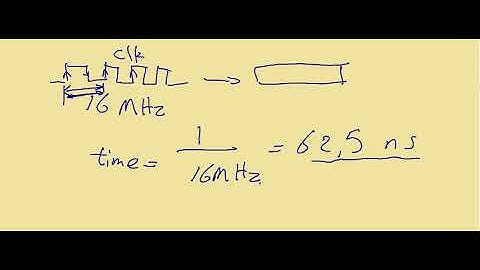 clk
16 MHz
time = 1 / 16MHz = 62,5 ns